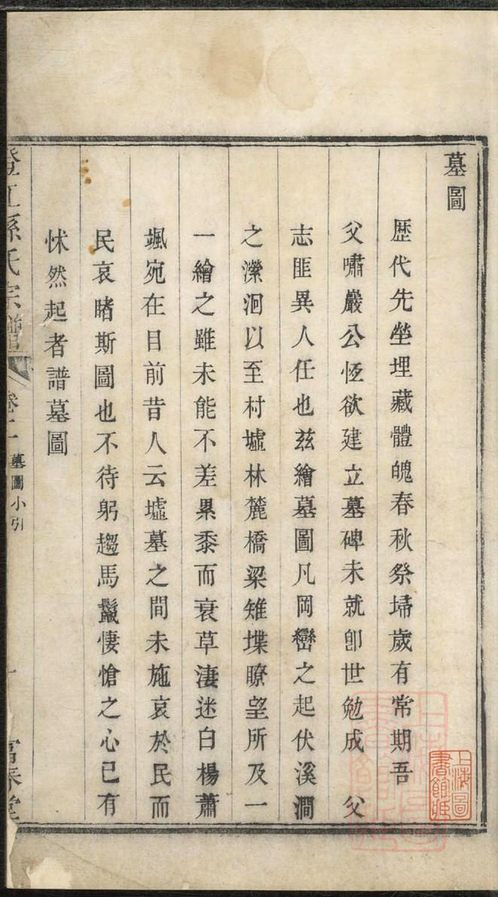 墓圖
歷代先塋埋藏體魄春秋祭埽歲有常期吾
父嘯巖公恆欲建立墓碑未就卽世勉成父
志匪異人任也玆繪墓圖凡岡巒之起伏溪澗
之瀠洄以至村墟林麓橋梁雉堞瞭望所及一
一繪之雖未能不差累黍而衰草淒迷白楊蕭
颯宛在目前昔人云墟墓之間未施哀於民而
民哀睹斯圖也不待躬趨馬鬣悽愴之心已有
怵然起者譜墓圖
江孫氏宗譜
卷十一墓圖小引
一
富春堂
上海圖書館藏